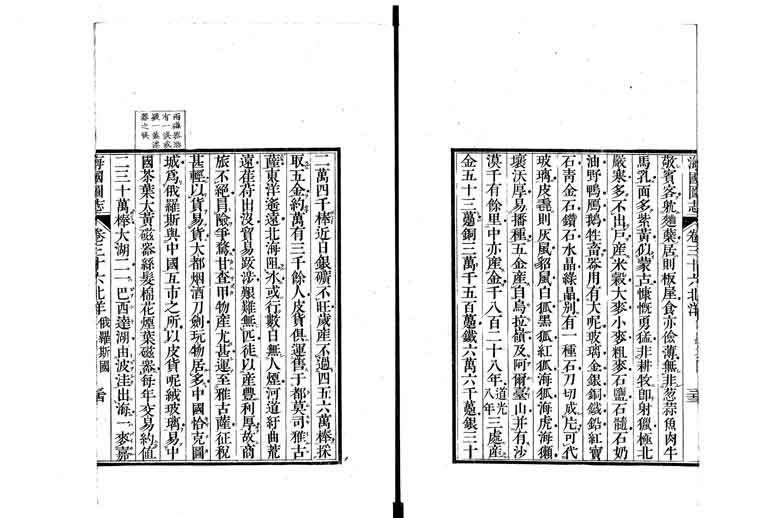 海國圖志 卷三十六 北洋
敬賓客就麵藥居則板屋食亦儉薄無非葱蒜魚肉牛
馬乳面多紫黃似蒙古慷慨勇猛非耕牧即射獵極北
嚴寒多不出戶產米穀大麥小麥粗麥石鹽石髓石奶
油野鴨鴈鵝牲畜器用有大呢玻璃金銀銅鐵鉛紅寶
石靑金石鑽石水晶綠晶別有一種石刀切成片可代
玻璃皮毳則灰風貂風白狐黑狐紅狐海狐海虎海獺
壤沃厚易播種五金產自烏拉嶺及阿爾臺山并有沙
漠千有餘里中亦產金千八百二十八年道光八年三處產
金五十三萬銅三萬千五百萬鐵六萬六千萬銀三十
二萬四千棒近日銀礦不旺歲產不過四五六萬棒採
取五金約萬有三千餘人皮貨俱運售于都莫司雅古
薩東洋遙遠北海阻冰或行數日無人煙河道紆曲荒
遠萑苻出沒貿易跋涉艱難無匹徒以產豐利厚故商
旅不絕冒險爭騖甘查甲物產尤甚運至雅古薩征稅
甚輕以貨易貨大都烟酒刀劍玩物居多中國恰克圖
城爲俄羅斯與中國互市之所以皮貨呢絨玻璃易中
國茶葉大黃磁器絲髮棉花煙葉磁器每年交易約值
二三十萬棒大湖二一巴西達湖由波洼出海一麥嘉
海國圖志 卷三十六 北洋 俄羅斯國